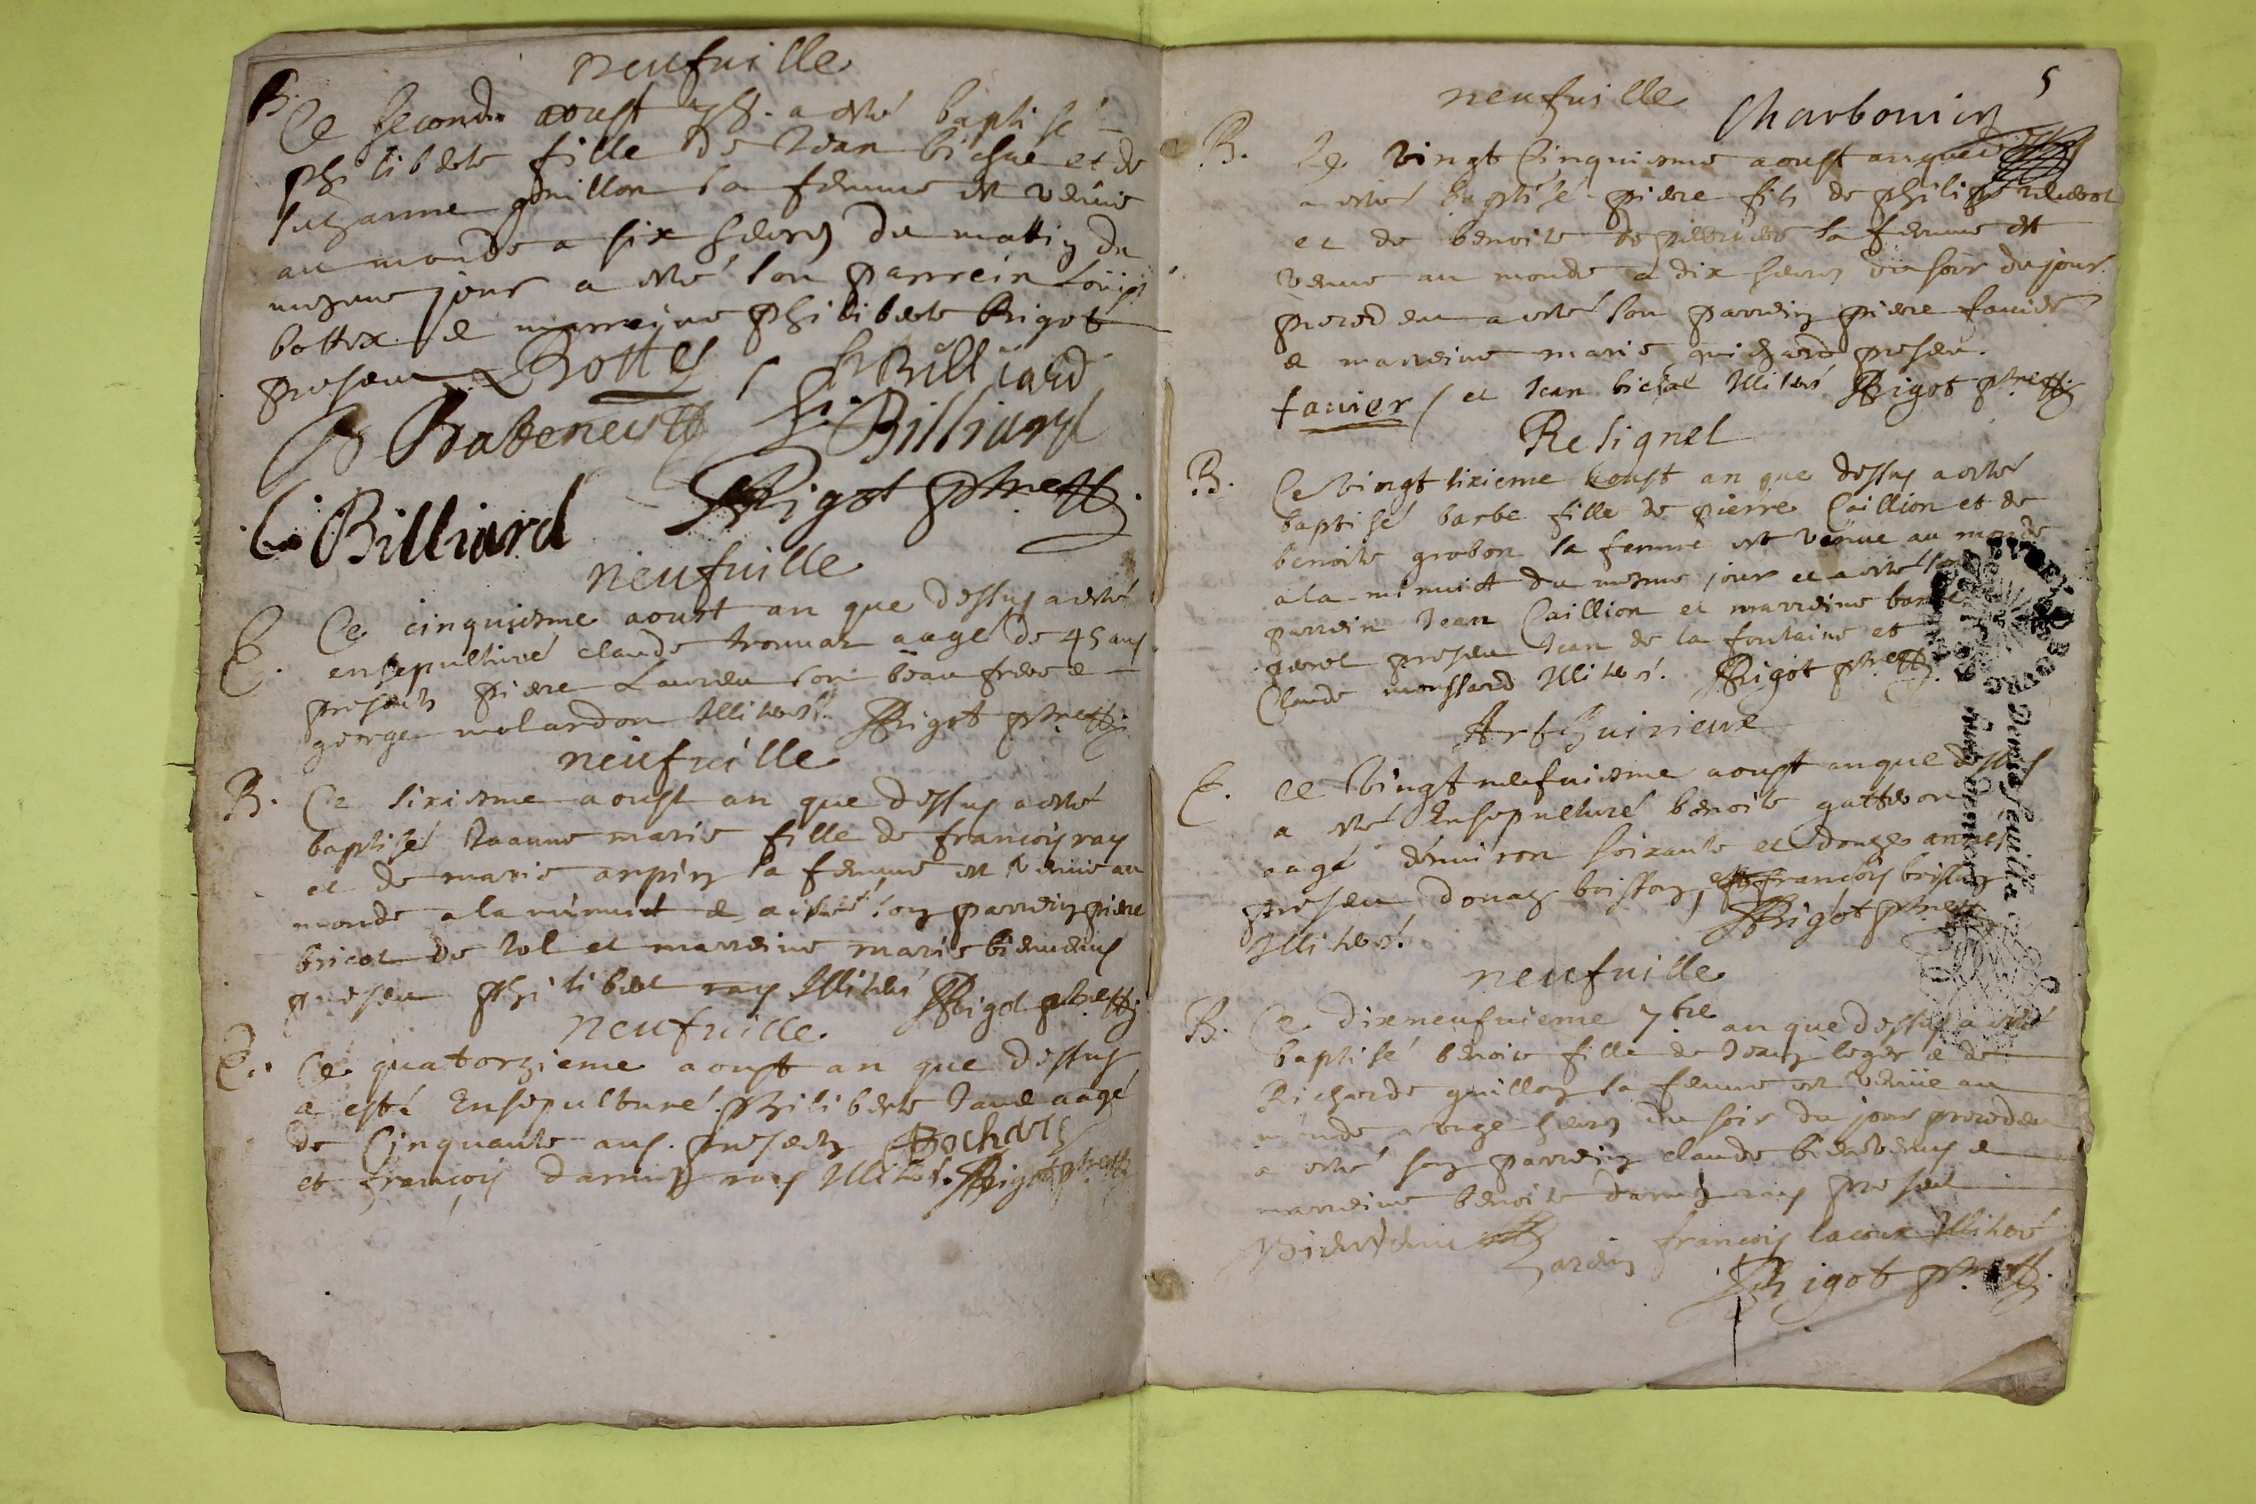 neufuille
B. Ce second aoust 78. a esté baptisé
philiberte fille de Jean bichat et de
suzanne gouillon sa femme est venüe
au monde a six heures du matin du
mesme jour a esté son parrein Loüis
bottex & marreine philiberte Rigot
present Bottex h Billiard
B Babeneust h. Billiard
C. Billiard Rigot ptre
neufuille
E. Ce cinquiesme aoust an que dessus a esté
ensepulturé claude trouuas aagé de 45 ans
presents piere Laurieu son beau frere &
george molardon Illiterés. Rigot ptre
neufuille
B. Ce sixiesme aoust an que dessus a esté
baptisé Jeanne marie fille de francois ray
et de marie arpin sa femme est venüe au
monde a la minuit & a esté son parrein piere
bricot de sol et marreine marie bienvenus
present philibert ray Illiteré Rigot ptre
neufuille
E. Ce quatorzieme aoust an que dessus
a esté Ensepulturé philiberte aagé
de Cinquante ans. presents Bochard
et françois ray Illiteré. Rigot ptre
5
neufuille Charbonier
B. Ce vingt Cinquiesme aoust an que dessus
a esté baptisé piere fils de philipe
et de benoite sa femme est
venue au monde a dix heures du soir du jour
precedent a esté son parrein piere fauier
& marreine marie guichard present.
fauier et Jean bichat Illiteré Rigot ptre
Resignel
B. Ce vingt sixieme aoust an que dessus a esté
baptisé barbe fille de pierre Caillion et de
benoite grobon sa femme est venüe au monde
a la minuict du mesme jour et a esté son
parrein Jean Caillion et marreine barbe
perret present Jean de la fontaine et
Claude moussard Illiterés. Rigot ptre
Arthuirieux
E. Ce vingt neufuiesme aoust an que dessus
a esté Ensepulturé benoite
aagé d'enuiron soixante et douze années
present donat buisson, et francois buisson
Illiterés. Rigot ptre
neufuille
B. Ce dixneufuieme 7bre an que dessus a esté
baptisé benoite fille de Jean leger & de
Richarde guillon sa femme est venüe au
monde a onze heures du soir du jour precedent
a esté son parrein claude bienvenus &
marreine benoite ray present
Bienvenu francois lacour Illiteré
Rigot ptre